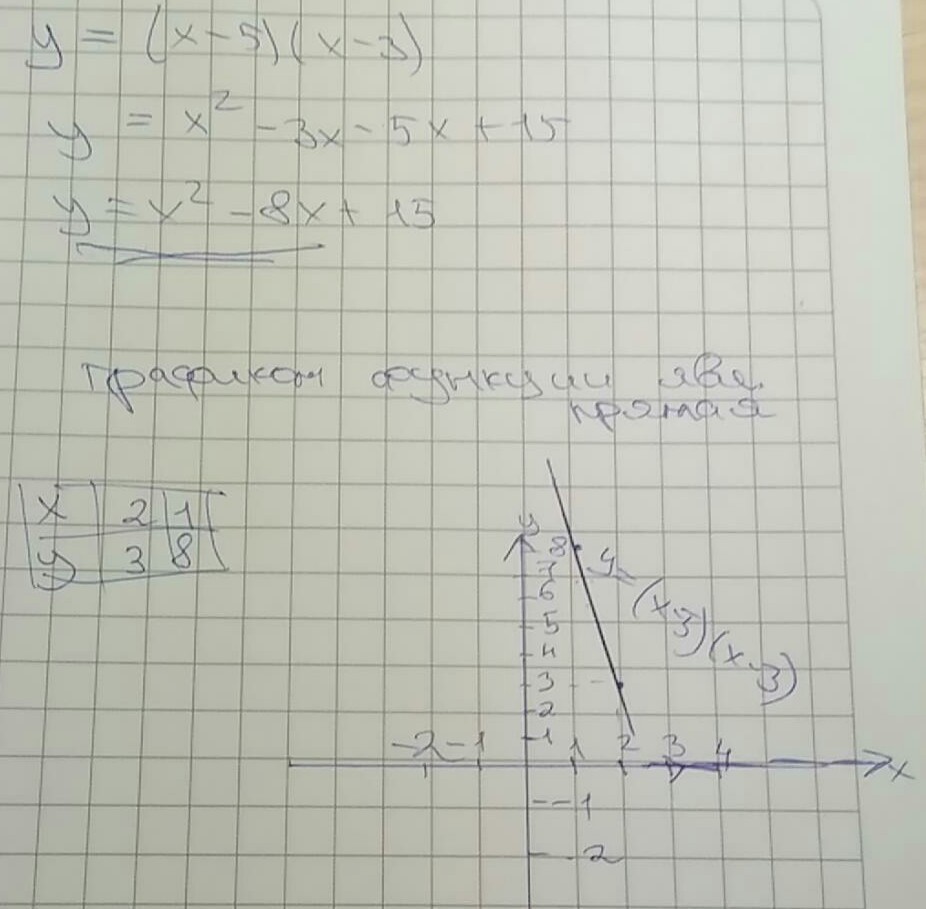 y = (x-5)(x-3)
y = x² - 3x - 5x + 15
y = x² - 8x + 15
графиком функции явл.
прямая
x 2 1
y 3 8
y
8
7
6
5
4
3
2
1
y=(x-3)(x-3)
-2 -1 1 2 3 4 x
-1
-2